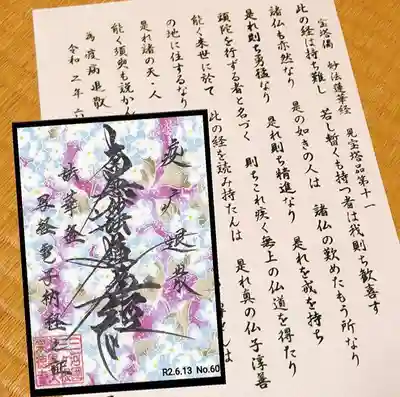 宝塔偈 妙法蓮華経 見宝塔品第十一
此の経は持ち難し 若し暫くも持つ者は我則ち歓喜す
諸仏も亦然なり 是の如きの人は 諸仏の歎めたもう所なり
是れ則ち勇猛なり 是れ則ち精進なり 是れを戒を持ち
頭陀を行ずる者と名づく 則ちこれ疾く無上の仏道を得たり
能く来世に於て 此の経を読み持たんは 是れ真の仏子淳善
の地に住するなり
是れ諸の天・人
能く須臾も説かん
為疫病退散
令和二年六
疫病退散
南無妙法蓮華経
法華経
R2.6.13 No.60